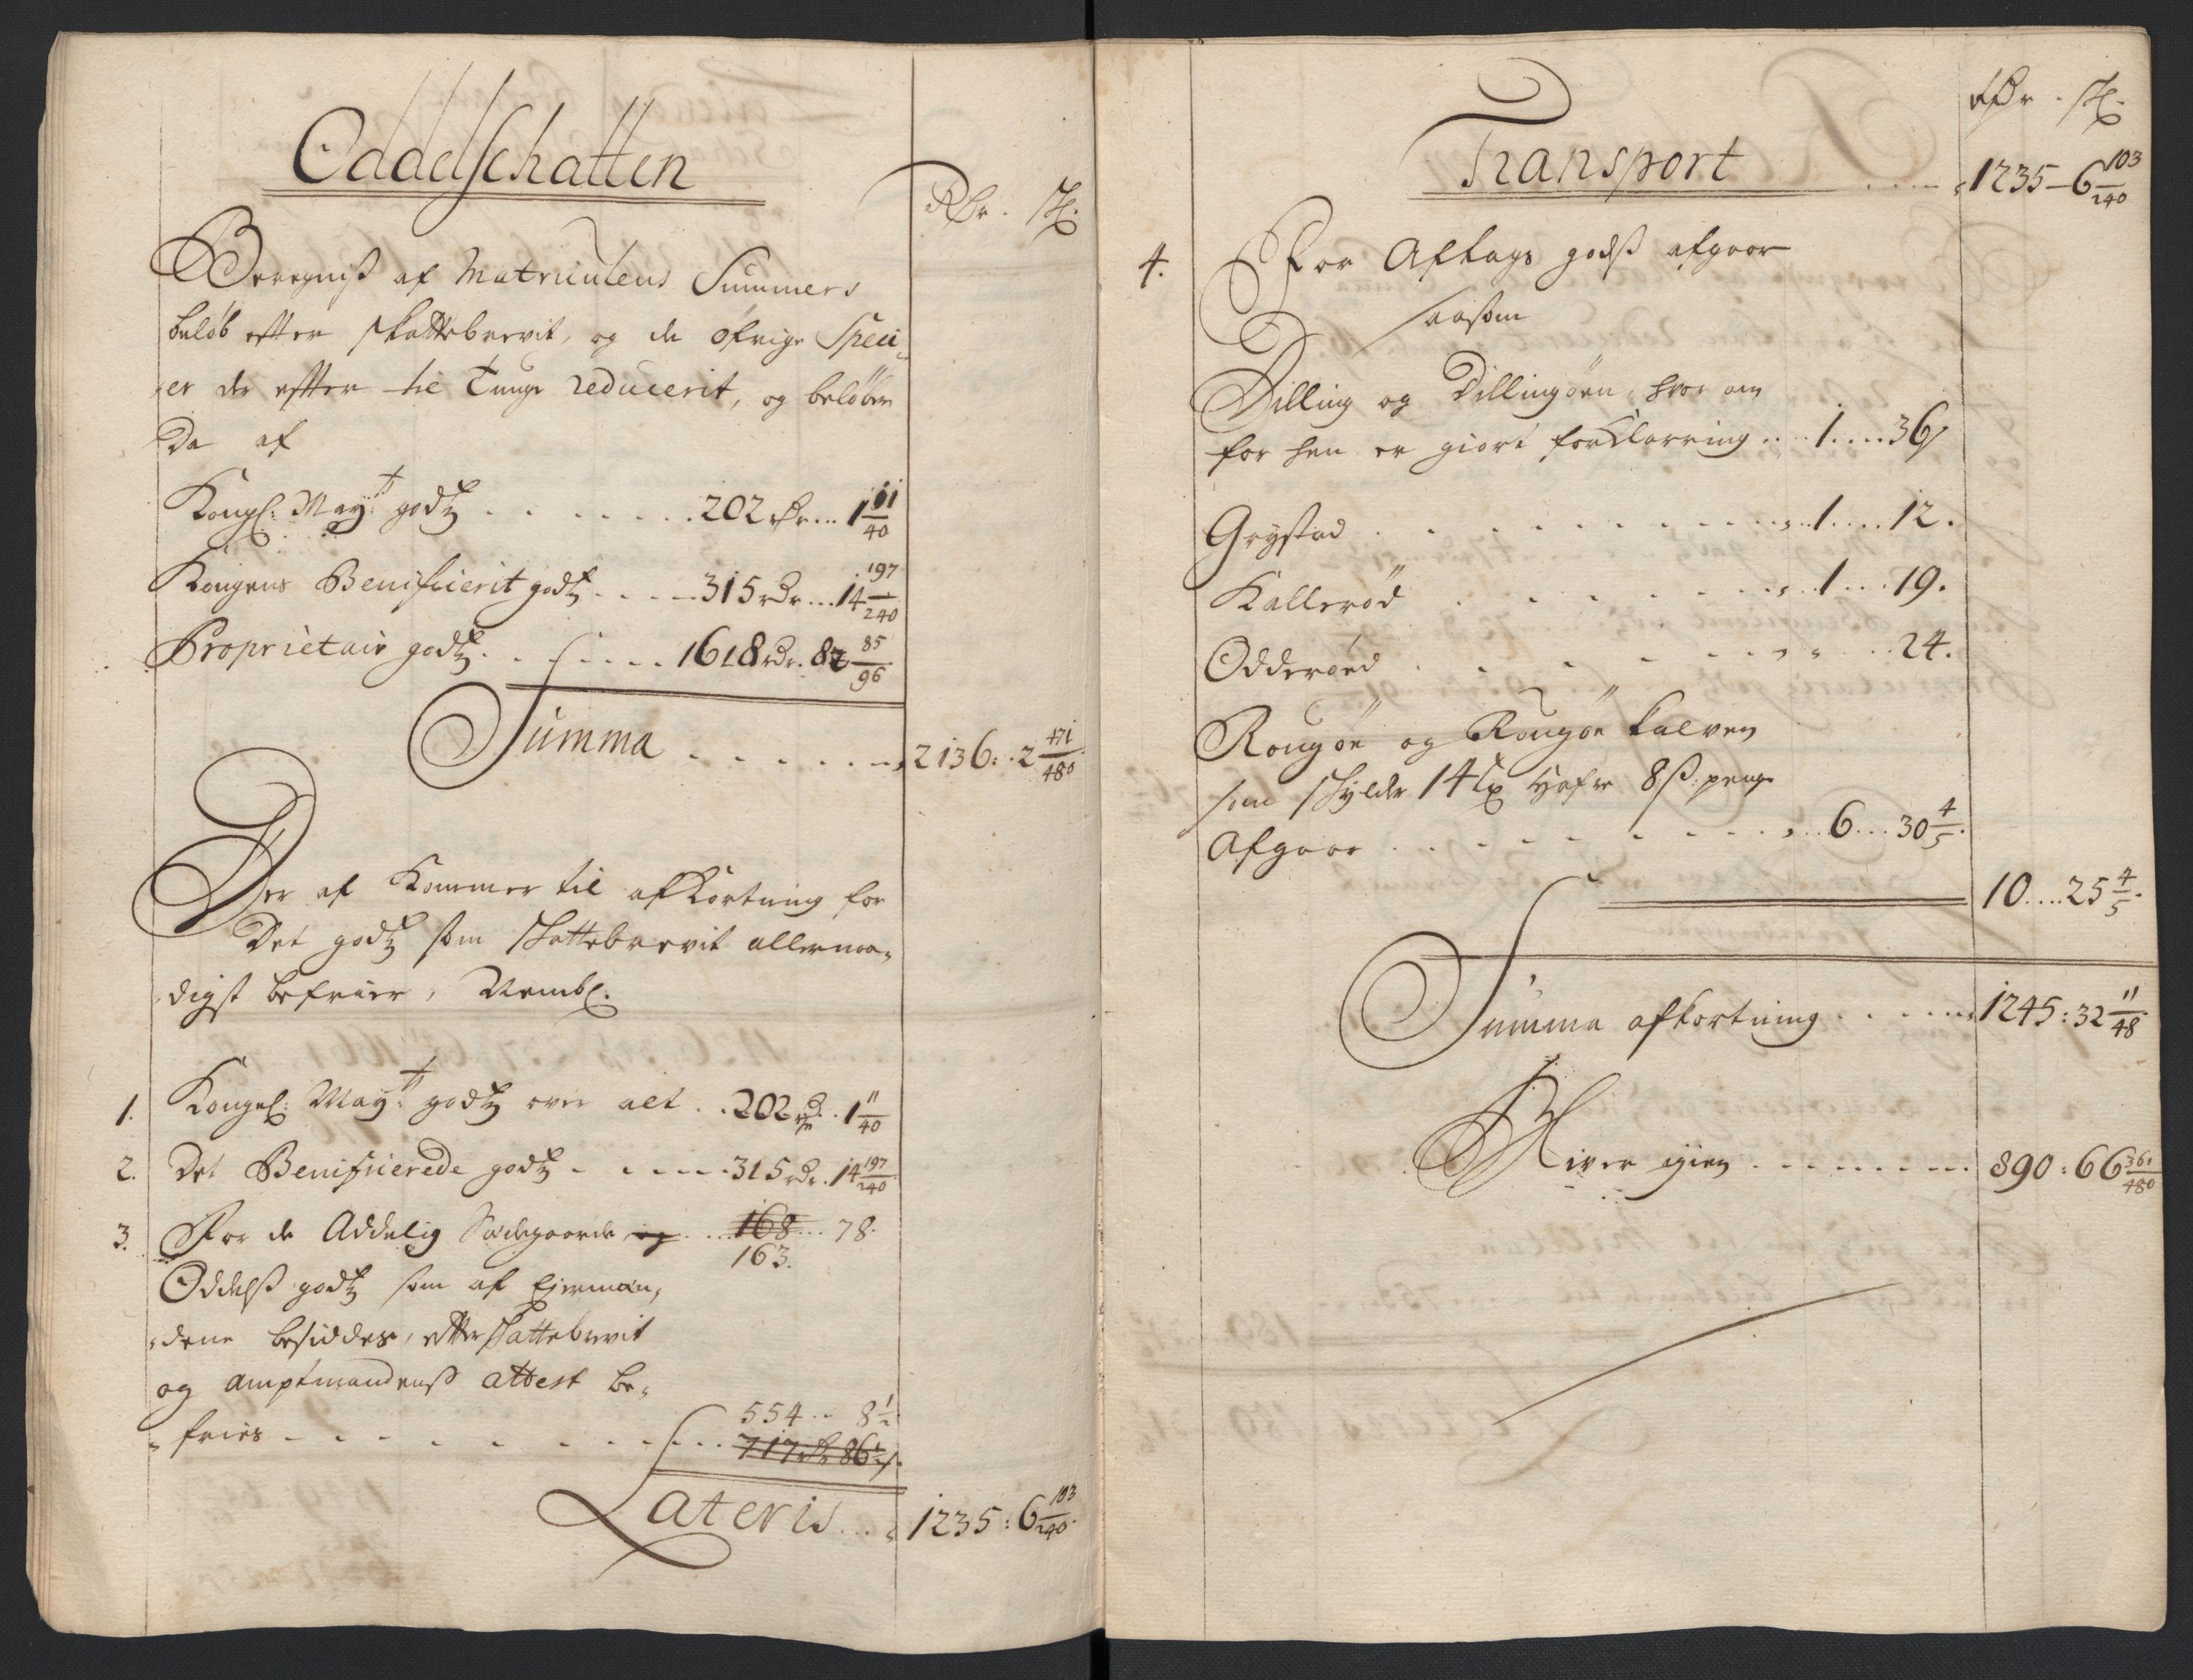 Oddelschatten
Rdr. sk.
Beregniß af Matriculens Summers
beløb efter skattebrevit, og de øfrige Speci-
er der effter til Tunge reducerit, og beløber
Da af
Kongl: Mayts godtz . . . . . . . 202 rdr... 1 11/40
Kongens Benificierit godtz . . . . 315 rdr... 14 197/240
Proprietair godtz . . . . . . 1618 rdr. 82 85/96
Summa . . . . . . 2136: . 2 471/480
Der af Kommer til afkortning for
Det godtz som skattebrevit allernaa-
digst befrier, Nembl.
1. Kongel: Mayts godtz over alt . . 202 rdr . 1 11/40
2. Det Benificierede godtz . . . . . 315 rdr. 14 197/240
3. For de Addelig Sædegaarde og . . . 168 . . . 78.
163.
Oddelß godtz som af Eiermæn-
dene besiddes, effter skattebrevit
og amptmandenß attest be-
554 .. 8 1/2
fries . . . . . . . . . . . 717 rdr 86 1/2 s.
Lateris . . . 1235: 6 103/240.
rdr . sk.
Transport . . . . 1235 – 6 103/240
4. For Aftags godß afgaar
saasom
Dilling og Dillingøen, hvor om
for hen er giort forklarring . . . 1 . . . . 36
Grystad . . . . . . . . . . . . . 1 . . . . 12.
Kallerød . . . . . . . . . . . 1 . . . 19.
Odderøed . . . . . . . . „ . . . 24.
Rougøe og Rougøe Kalven
som skylder 14 Lp Hafre 8 ß. penge
Afgaar . . . . . . . . . . . 6 . . . 30 4/5.
10 . . . . 25 4/5.
Summa afkortning . . . . . . 1245: 32 11/48
Bliver igien . . . . . . . . 890: 66 361/480